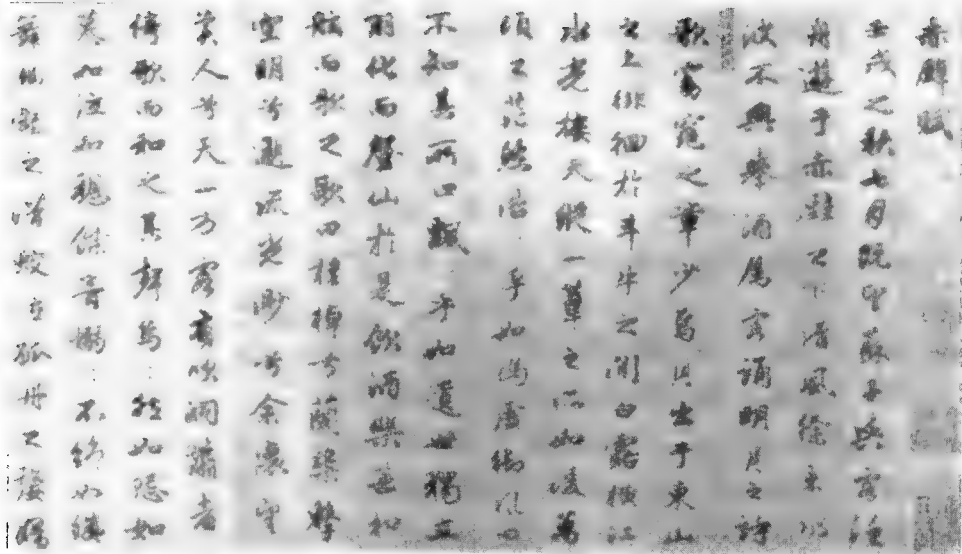 赤壁賦
壬戌之秋七月既望蘇子與客泛
舟遊于赤壁之下清風徐來水
波不興舉酒屬客誦明月之詩
歌窈窕之章少焉月出于東山
之上徘徊於斗牛之間白露橫江
水光接天縱一葦之所如凌萬
頃之茫然浩〻乎如馮虛御風而
不知其所止飄〻乎如遺世獨立
羽化而登仙於是飲酒樂甚扣
舷而歌之歌曰桂棹兮蘭槳擊
空明兮遡流光渺兮余懷望
美人兮天一方客有吹洞簫者
倚歌而和之其聲嗚〻然如怨如
慕如泣如訴餘音嫋〻不絕如縷
舞幽壑之潛蛟泣孤舟之嫠婦